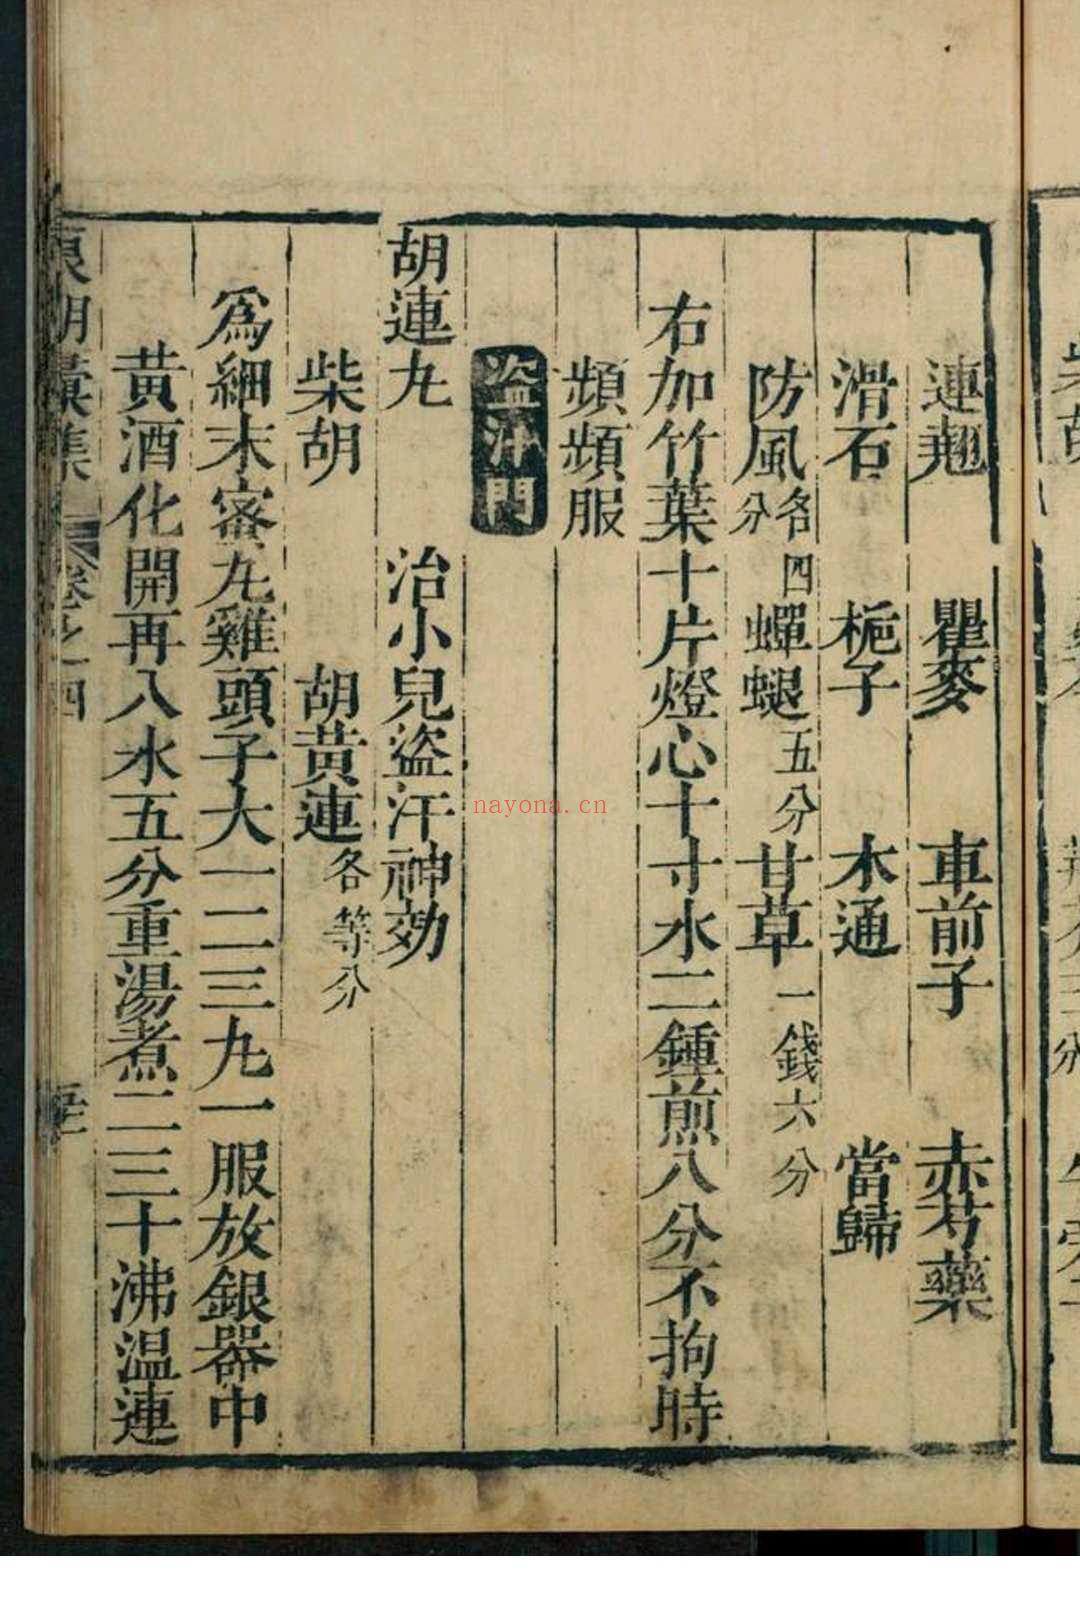 連翹 瞿麥 車前子 赤芍藥
滑石 梔子 木通 當歸
防風各四分 蟬蜕五分 甘草一錢六分
右加竹葉十片燈心十寸水二鍾煎八分不拘時
頻頻服
盗汗門
胡連丸 治小兒盜汗神効
柴胡 胡黃連各等分
爲細末蜜丸雞頭子大一二三丸一服放銀器中
黃酒化開再入水五分重湯煮二三十沸温連
卷之四
nayona.cn